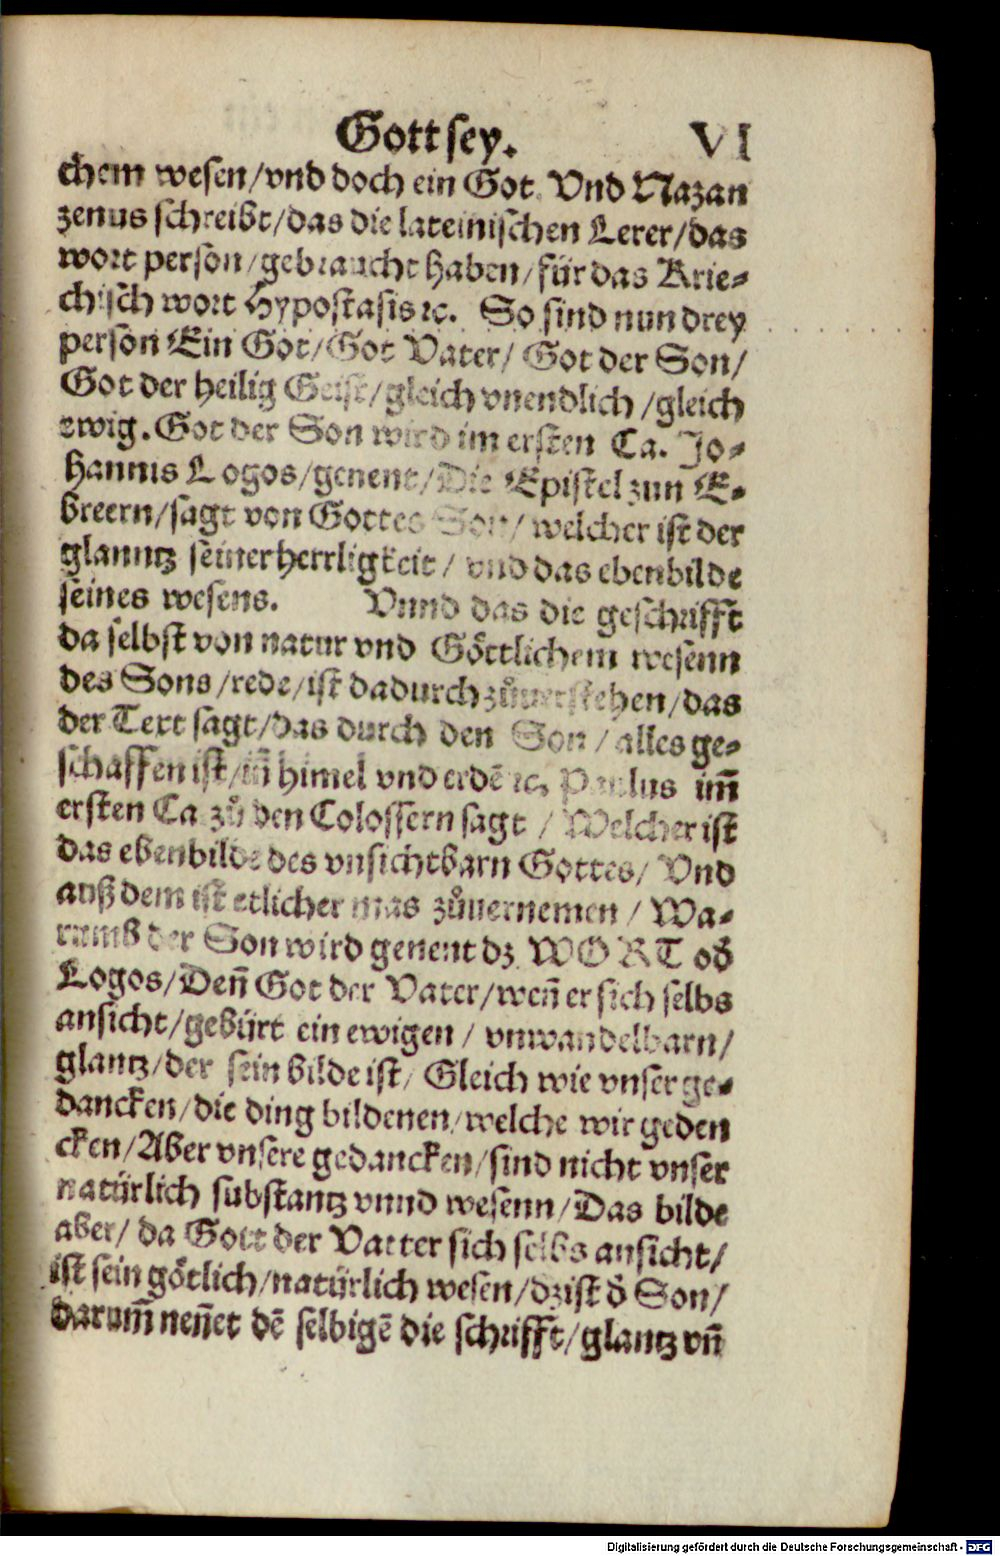 Gott sey. VI
chem wesen/vnd doch ein Got. Vnd Nazan
zenus schreibt/das die lateinischen Lerer/das
wort person/gebraucht haben/für das Krie-
chisch wort Hypostasis ꝛc. So sind nun drey
person Ein Got/Got Vater/ Got der Son/
Got der heilig Geist/gleich vnendlich /gleich
ewig. Got der Son wird im ersten Ca. Jo-
hannis Logos/genent/Die Epistel zun E-
breern/sagt von Gottes Son/ welcher ist der
glanntz seiner herrligkeit/ vnd das ebenbilde
seines wesens. Vnnd das die geschrifft
da selbst von natur vnd Göttlichem wesenn
des Sons/rede/ist dadurch zůuerstehen/das
der Text sagt/das durch den Son/alles ge-
schaffen ist/im̃ himel vnd erdẽ ꝛc. Paulus im̃
ersten Ca. zů den Colossern sagt / Welcher ist
das ebenbilde des vnsichtbarn Gottes/ Vnd
auß dem ist etlicher mas zůuernemen / Wa-
rumb der Son wird genent dz WORT od̕
Logos/Den̄ Got der Vater/wen̄ er sich selbs
ansicht/gebürt ein ewigen / vnwandelbarn/
glantz/der sein bilde ist/ Gleich wie vnser ge-
dancken/die ding bildenen/welche wir geden
cken/Aber vnsere gedancken/sind nicht vnser
natürlich substantz vnnd wesenn/Das bilde
aber/ da Gott der Vatter sich selbs ansicht/
ist sein götlich/natürlich wesen/dz ist d̕ Son/
darum̃ nen̄et dẽ selbigẽ die schrifft/glantz vn̄
Digitalisierung gefördert durch die Deutsche Forschungsgemeinschaft - DFG